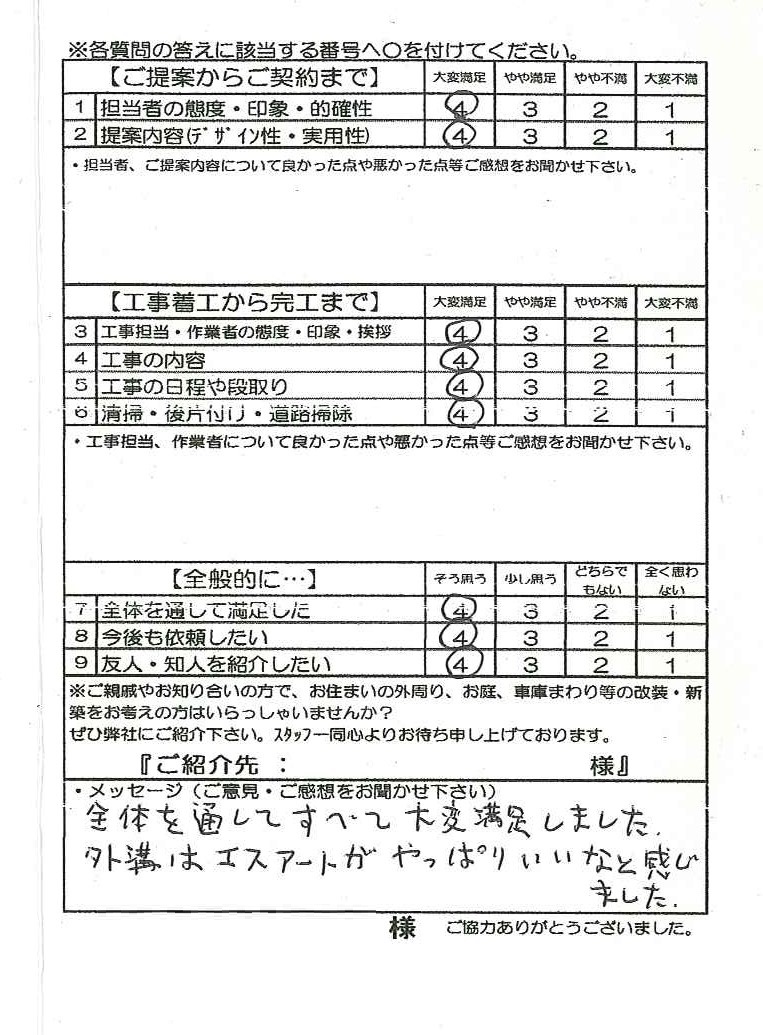 ※各質問の答えに該当する番号へ〇を付けてください。
【ご提案からご契約まで】 大変満足 やや満足 やや不満 大変不満
1 担当者の態度・印象・的確性 4 3 2 1
2 提案内容(ﾃﾞｻﾞｲﾝ性・実用性) 4 3 2 1
・担当者、ご提案内容について良かった点や悪かった点等ご感想をお聞かせ下さい。
【工事着工から完工まで】 大変満足 やや満足 やや不満 大変不満
3 工事担当・作業者の態度・印象・挨拶 4 3 2 1
4 工事の内容 4 3 2 1
5 工事の日程や段取り 4 3 2 1
6 清掃・後片付け・道路掃除 4 3 2 1
・工事担当、作業者について良かった点や悪かった点等ご感想をお聞かせ下さい。
【全般的に…】 そう思う 少し思う どちらでもない 全く思わない
7 全体を通して満足した 4 3 2 1
8 今後も依頼したい 4 3 2 1
9 友人・知人を紹介したい 4 3 2 1
※ご親戚やお知り合いの方で、お住まいの外周り、お庭、車庫まわり等の改装・新
築をお考えの方はいらっしゃいませんか？
ぜひ弊社にご紹介下さい。ｽﾀｯﾌ一同心よりお待ち申し上げております。
『ご紹介先 ： 様』
・メッセージ（ご意見・ご感想をお聞かせ下さい）
全体を通してすべて大変満足しました.
外溝はエスアートがやっぱりいいなと感じ
ました.
様 ご協力ありがとうございました。